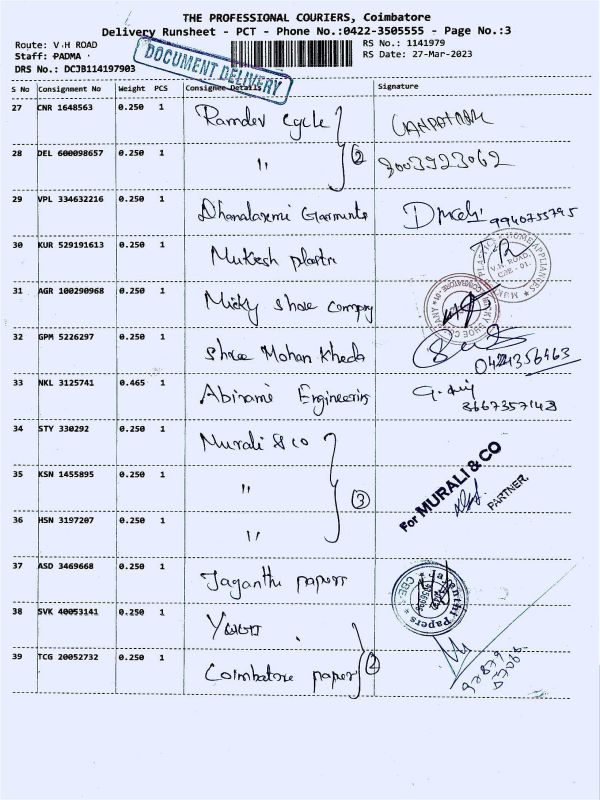 THE PROFESSIONAL COURIERS, Coimbatore
Delivery Runsheet - PCT - Phone No.:0422-3505555 - Page No.:3
Route: V.H ROAD
RS No.: 1141979
Staff: PADMA
RS Date: 27-Mar-2023
DRS No.: DCJB114197903
DOCUMENT DELIVERY
S No Consignment No Weight PCS Consignee Details Signature
27 CNR 1648563 0.250 1 Ramdev Cycle
28 DEL 600098657 0.250 1 " 2 3003923062
29 VPL 334632216 0.250 1 Dhanalaxmi Garments 9940755795
30 KUR 529191613 0.250 1 Mukesh plastic
V.H ROAD, CBE - 01.
31 AGR 100290968 0.250 1 Micky Shoe Company
32 GPM 5226297 0.250 1 Shree Mohan Kheda
33 NKL 3125741 0.465 1 Abirami Engineering 3667357143
34 STY 330292 0.250 1 Murali & co
35 KSN 1455895 0.250 1 " 3
For MURALI & CO
PARTNER.
36 HSN 3197207 0.250 1 "
37 ASD 3469668 0.250 1 Jayanthi papers
Jayanthi Papers
CBE-1
38 SVK 40053141 0.250 1
39 TCG 20052732 0.250 1 Coimbatore papers 2